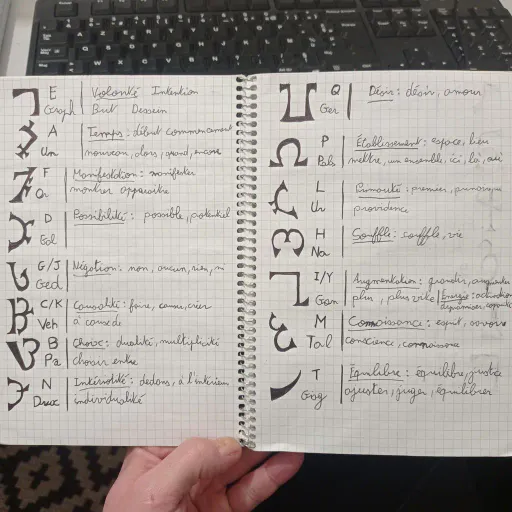 E | Volonté Intention
Graph | But Dessein
A | Temps: début commencement
Un | nouveau, alors, quand, encore
F | Manifestation: manifester
Or | montrer apparaître
D | Possibilité: possible, potentiel
Gal
G/J | Négation: non, aucun, rien, ni
Ged
C/K | Causalité: faire, cause, créer
Veh | à cause de
B | Choix: dualité, multiplicité
Pa | choisir entre
N | Intériorité: dedans, à l'intérieur
Drux | individualité
Q | Désir: désir, amour
Ger
P | Établissement: espace, lieu
Pals | mettre, un ensemble, ici, là, où
L | Primauté: premier, primordial
Ur | providence
H | Souffle: souffle, vie
Na
I/Y | Augmentation: grandir, augmenter
Gon | plus, plus vite | Énergie: activation
dynamiser,
M | Connaissance: esprit, savoir
Tal | conscience, connaissance
T | Équilibre: équilibre, justice
Gisg | ajuster, juger, équilibrer